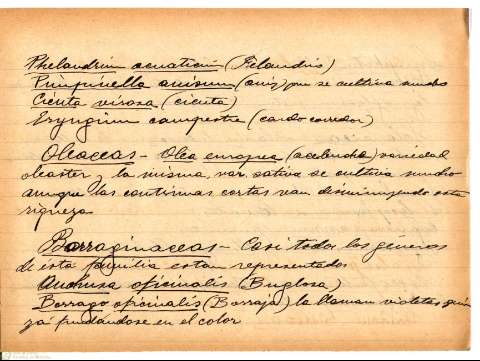 Phelandrium acuaticum (Felandrio)
Pimpinella anisum (aniz) que se cultiva mucho
Cicuta virosa (cicuta)
Eryngium campestre (cardo corredor)
Oleaceas - Olea europea (acebuche) variedad
oleaster y la misma var. sativa se cultiva mucho
aunque las continuas cortas van disminuyendo esta
riqueza
Borraginaceas - Casi todos los géneros
de esta familia estan representados
Anchusa oficinalis (Buglosa)
Borrago oficinalis (Borraja) la llaman violetas quiza
fundandose en el color